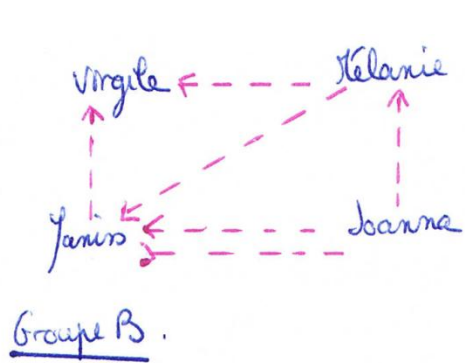 Virgile
Mélanie
Janiss
Joanna
Groupe B.